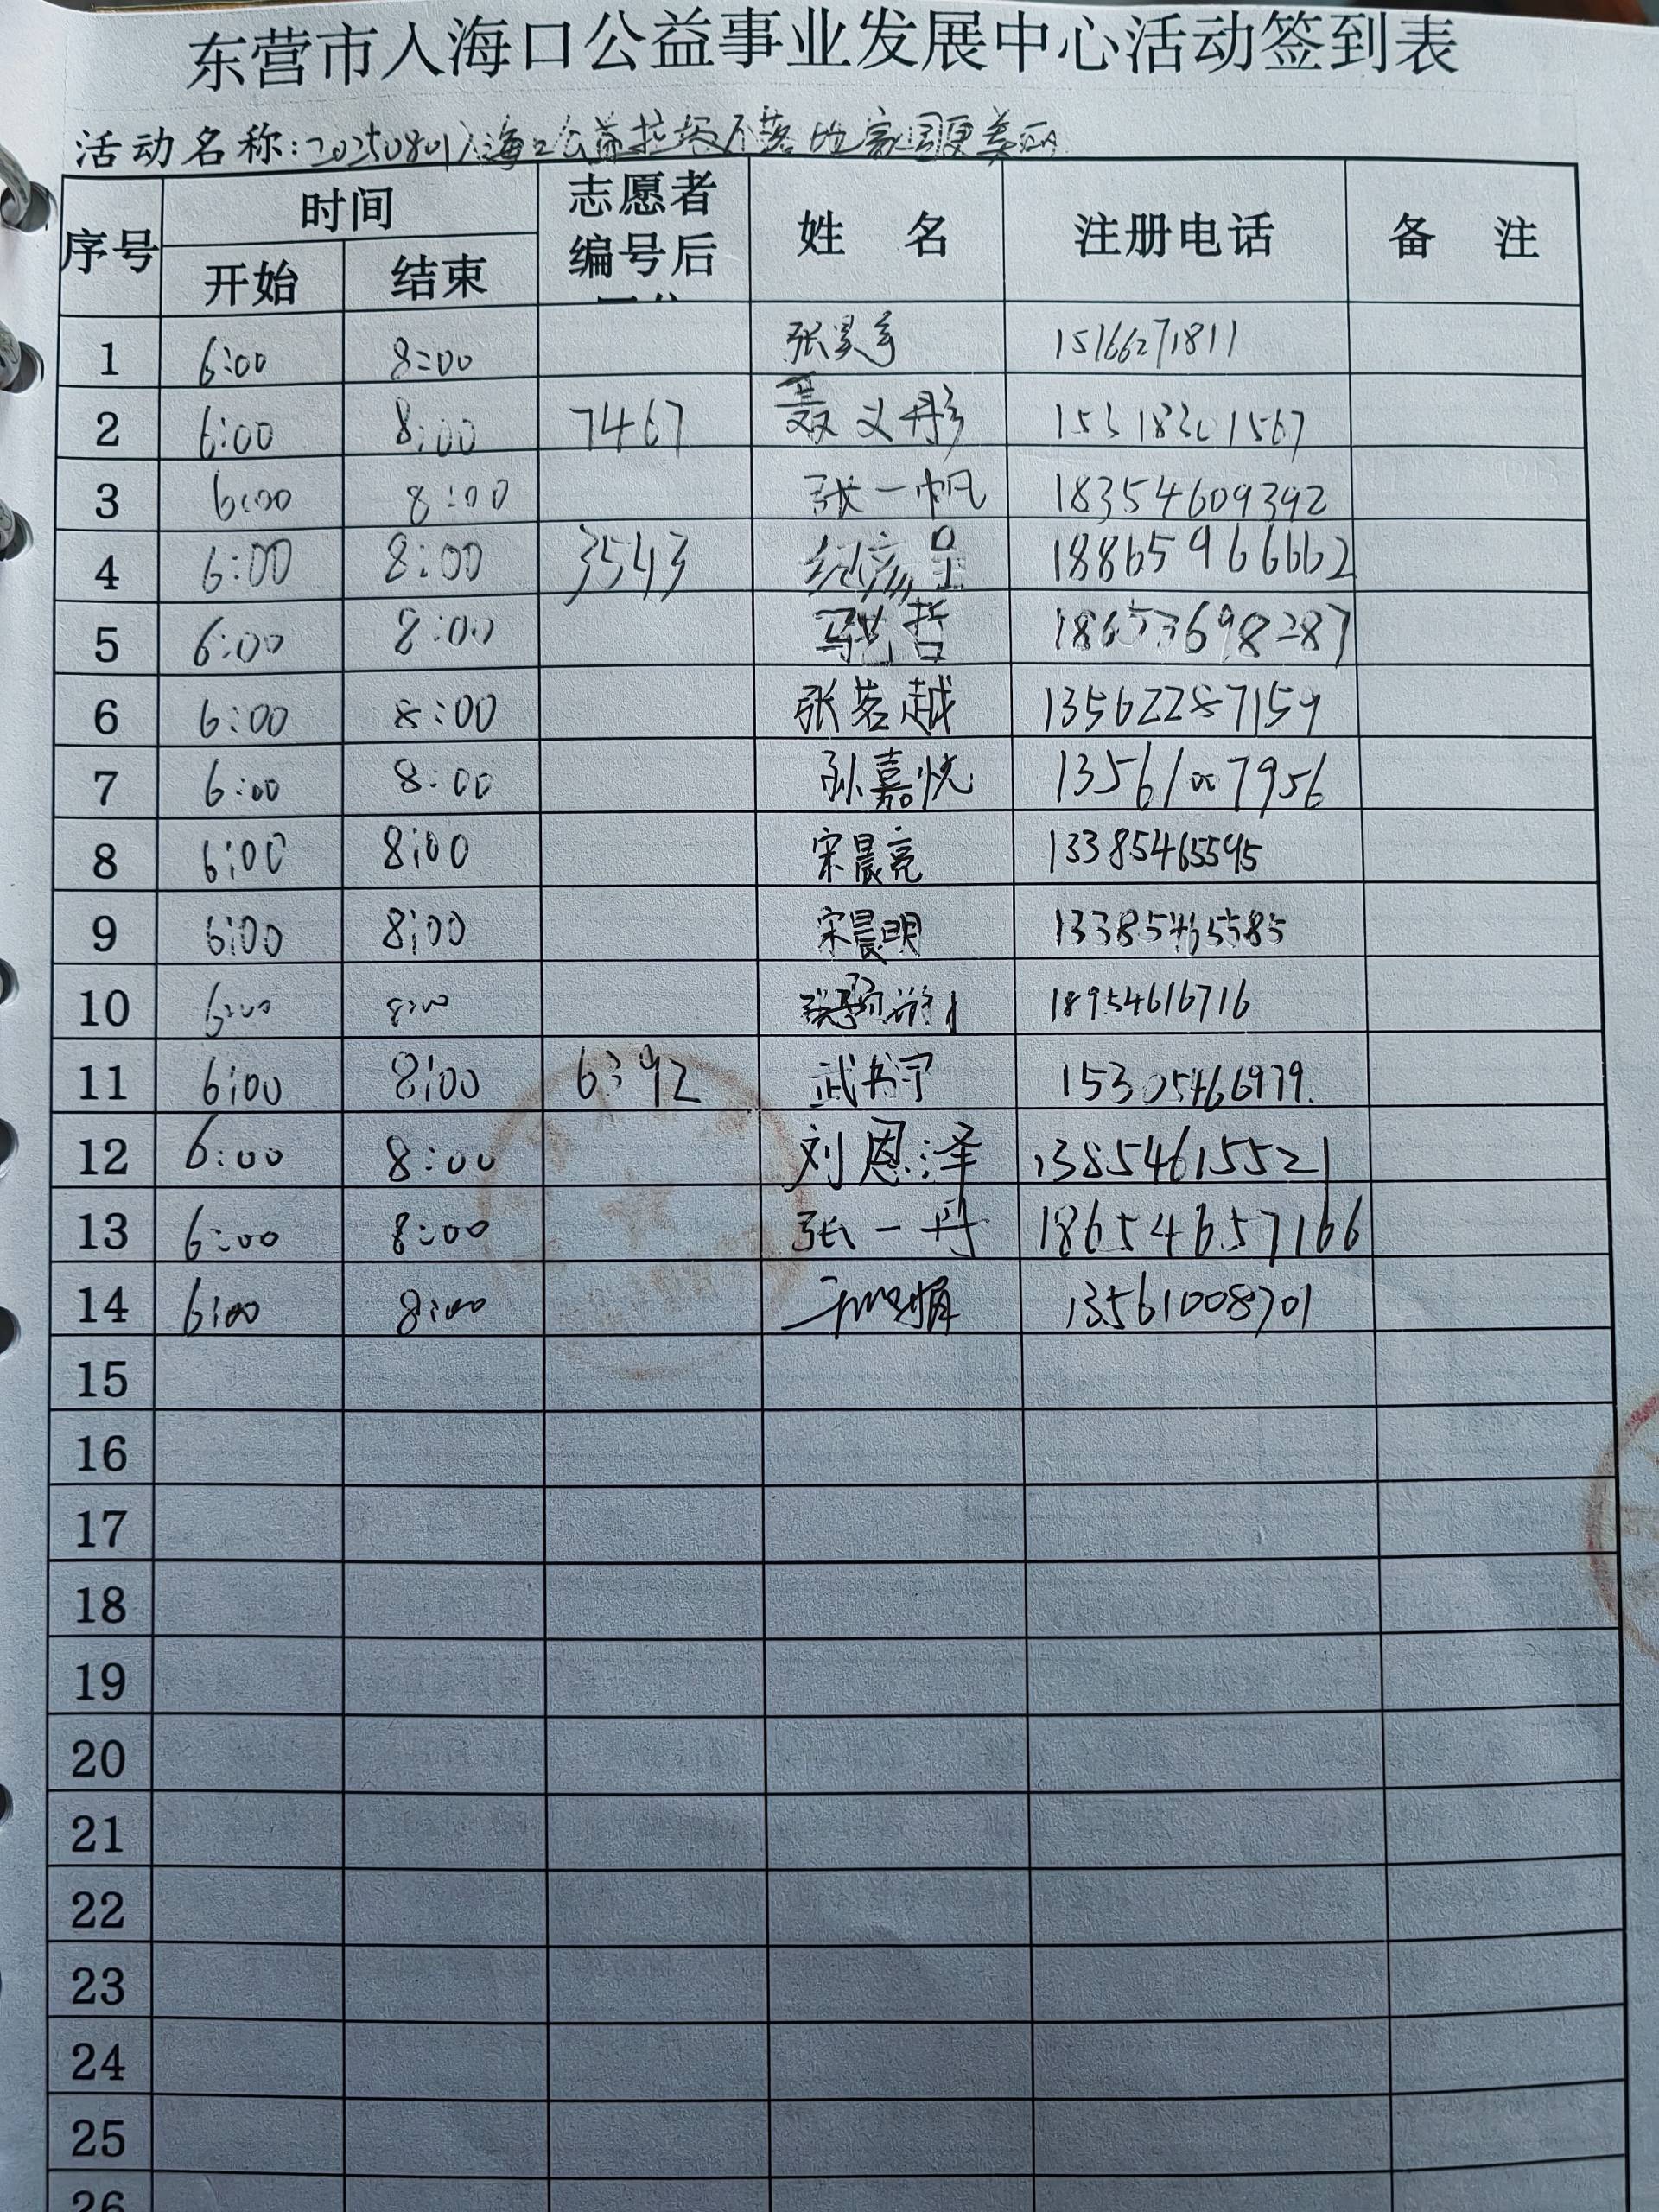 东营市入海口公益事业发展中心活动签到表
活动名称:20250801入海口公益垃圾不落地家园更美丽
序号 时间 志愿者编号后 姓 名 注册电话 备 注
开始 结束
1 6:00 8:00 张昊宇 15166271811
2 6:00 8:00 7467 聂文彤 15318301567
3 6:00 8:00 张一帆 18354609392
4 6:00 8:00 3543 纪彦呈 18865966662
5 6:00 8:00 哲 18653698287
6 6:00 8:00 张若越 13562287159
7 6:00 8:00 孙嘉悦 13561007956
8 6:00 8:00 宋晨亮 13385465595
9 6:00 8:00 宋晨明 13385465585
10 6:00 8:00 18954616716
11 6:00 8:00 6392 武书宇 15305466979
12 6:00 8:00 刘恩泽 13854615521
13 6:00 8:00 张一丹 18654657166
14 6:00 8:00 13561008701
15
16
17
18
19
20
21
22
23
24
25
26